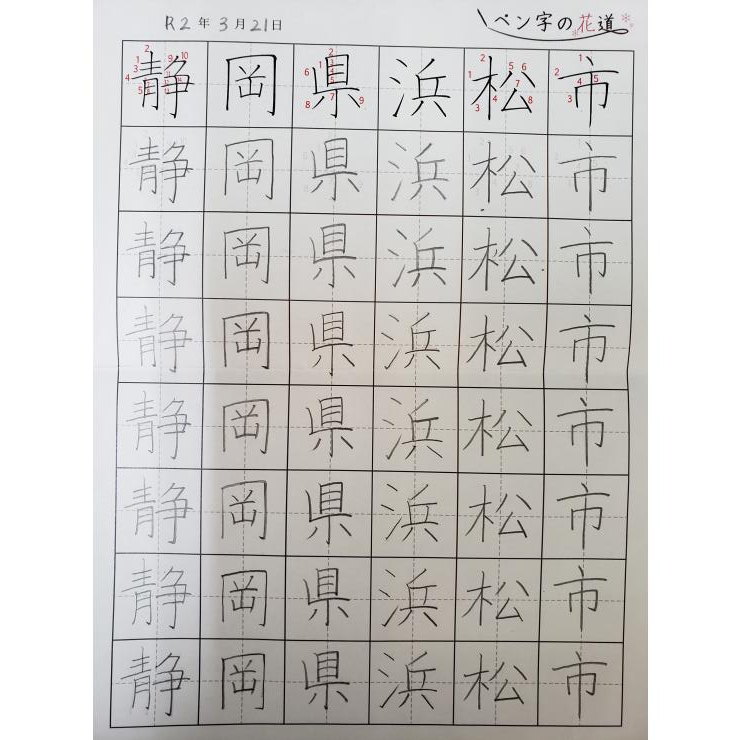 R2年3月21日 ペン字の花道
静岡県浜松市
静岡県浜松市
静岡県浜松市
静岡県浜松市
静岡県浜松市
静岡県浜松市
静岡県浜松市
静岡県浜松市